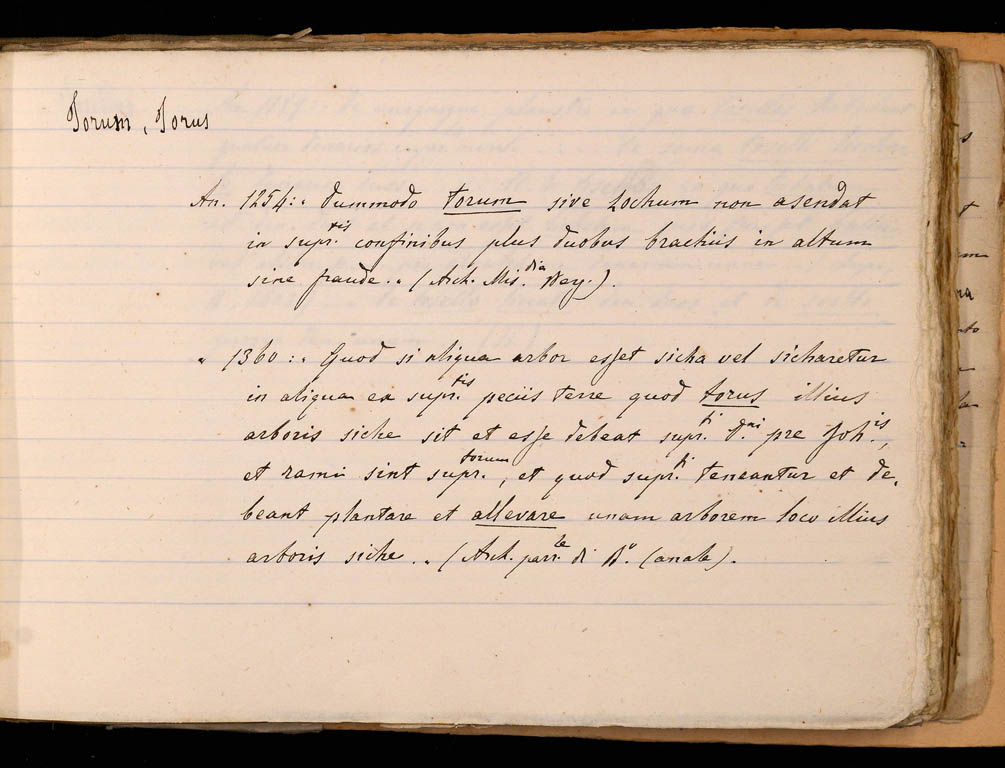 Torum, Torus
An. 1254:„ dummodo torum sive zochum non asendat
in supr.tis confinibus plus duobus brachiis in altum
sine fraude.„ (Arch. Mis.dia Reg.).
„ 1360:„ Quod si aliqua arbor esset sicha vel sicharetur
in aliqua ex supr.tis peciis terre quod torus illius
arboris siche sit et esse debeat supr.ti D.ni pre Joh.is,
et rami sint supr.torum, et quod supr.ti teneantur et de-
beant plantare et allevare unam arborem loco illius
arboris siche.„ (Arch. parr.le di B.o Canale).